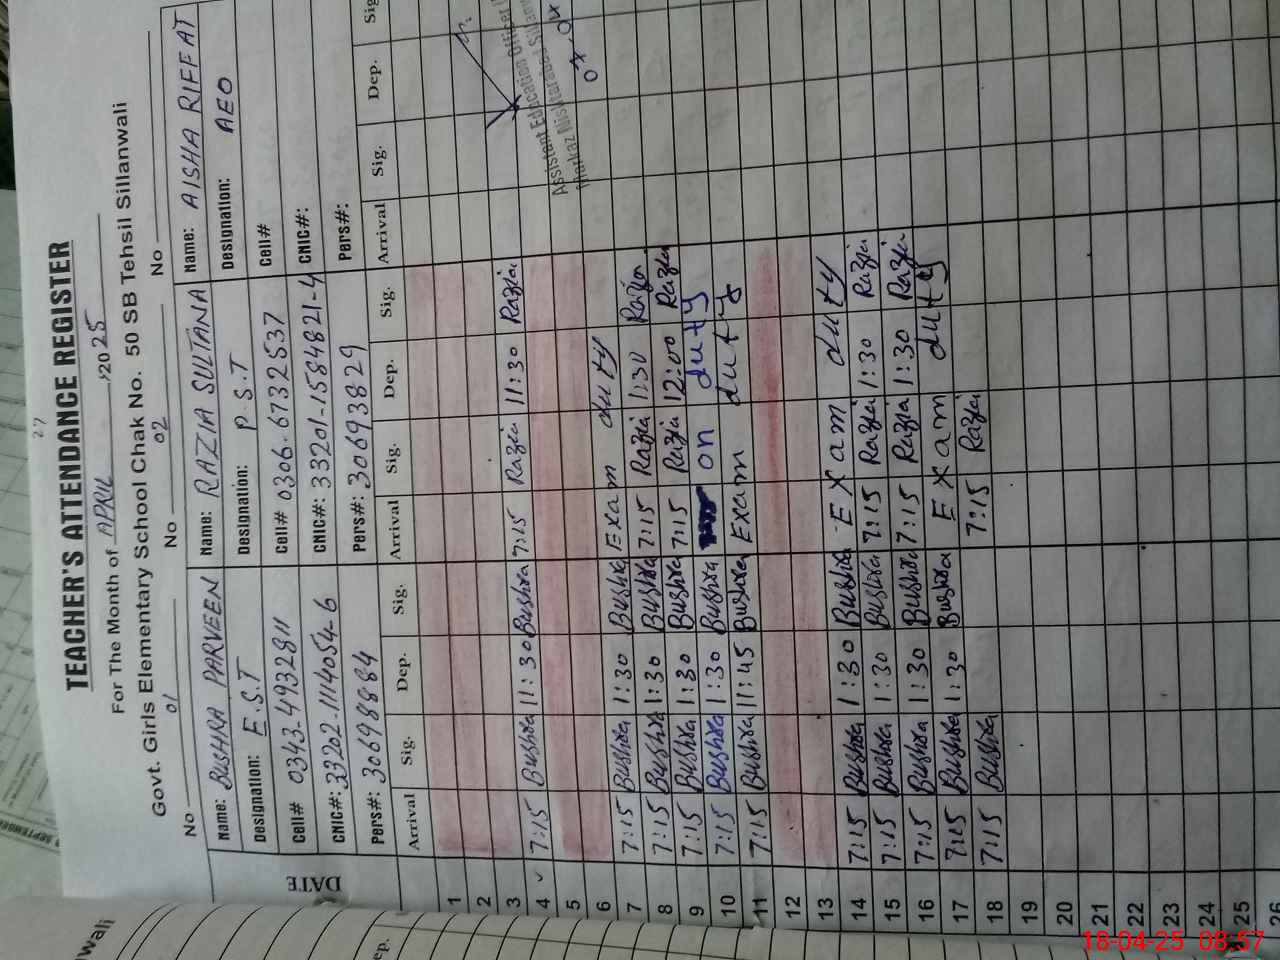 27
TEACHER'S ATTENDANCE REGISTER
For The Month of APRIL ,2025
Govt. Girls Elementary School Chak No. 50 SB Tehsil Sillanwali
No 01 No 02 No
Name: BUSHRA PARVEEN Name: RAZIA SULTANA Name: AISHA RIFFAT
Designation: E.S.T Designation: P.S.T Designation: AEO
Cell# 0343-4932811 Cell# 0306.6732537 Cell#
CNIC#: 33202-1114054-6 CNIC#: 33201-1584821-4 CNIC#:
Pers#: 30698884 Pers#: 30693829 Pers#:
DATE Arrival Sig. Dep. Sig. Arrival Sig. Dep. Sig. Arrival Sig. Dep. Sig
1
2
3
4 7:15 Bushra 11:30 Bushra 7:15 Razia 11:30 Razia
Assistant Education Officer
Markaz
5
6
7 7:15 Bushra 1:30 Bushra Exam duty
8 7:15 Bushra 1:30 Bushra 7:15 Razia 1:30 Razia
9 7:15 Bushra 1:30 Bushra 7:15 Razia 12:00 Razia
10 7:15 Bushra 1:30 Bushra on duty
11 7:15 Bushra 11:45 Bushra Exam duty
12
13
14 7:15 Bushra 1:30 Bushra Exam duty
15 7:15 Bushra 1:30 Bushra 7:15 Razia 1:30 Razia
16 7:15 Bushra 1:30 Bushra 7:15 Razia 1:30 Razia
17 7:15 Bushra 1:30 Bushra Exam duty
18 7:15 Bushra 7:15 Razia
19
20
21
22
23
24
25
26
wali
ep.
SEPTEMBER
18-04-25 08:57